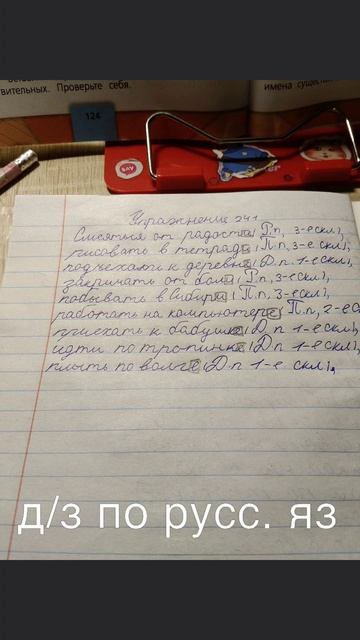 твительных. Проверьте себя.
имена существ
124
Упражнение 241
Смеяться от радости (Р.п, 3-е скл),
рисовать в тетради (П.п, 3-е скл),
подъехали к деревне (Д.п 1-е скл),
закричать от боли (Р.п, 3-е скл),
побывать в Сибири (П.п, 3-е скл),
работать на компьютере (П.п, 2-е с
приехать к бабушке (Д.п 1-е скл),
идти по тропинке (Д.п 1-е скл),
плыть по волге (Д.п 1-е скл),
д/з по русс. яз